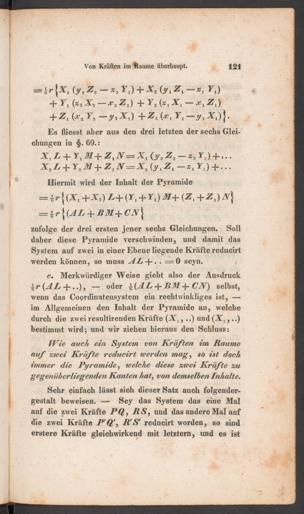 Von Kräften im Raume überhaupt. 121
= ⅙r {X₁ (y₁ Z₂ — z₁ Y₂) + X₂ (y₂ Z₁ — z₂ Y₁)
+ Y₁ (z₁ X₂ — x₁ Z₂) + Y₂ (z₂ X₁ — x₂ Z₁)
+ Z₁ (x₁ Y₂ — y₁ X₂) + Z₂ (x₂ Y₁ — y₂ X₁)}.
Es fliesst aber aus den drei letzten der sechs Glei-
chungen in §. 69.:
X₁ L + Y₁ M + Z₁ N = X₁ (y₂ Z₂ — z₂ Y₂) + ...
X₂ L + Y₂ M + Z₂ N = X₂ (y₁ Z₁ — z₁ Y₁) + ...
Hiermit wird der Inhalt der Pyramide
= ⅙r {(X₁ + X₂) L + (Y₁ + Y₂) M + (Z₁ + Z₂) N}
= ⅙r {(AL + BM + CN}
zufolge der drei ersten jener sechs Gleichungen. Soll
daher diese Pyramide verschwinden, und damit das
System auf zwei in einer Ebene liegende Kräfte reducirt
werden können, so muss AL + .. = 0 seyn.
c. Merkwürdiger Weise giebt also der Ausdruck
⅙r (AL + ..), — oder ⅙ (AL + BM + CN) selbst,
wenn das Coordinatensystem ein rechtwinkliges ist, —
im Allgemeinen den Inhalt der Pyramide an, welche
durch die zwei resultirenden Kräfte (X₁, ..) und (X₂, ..)
bestimmt wird; und wir ziehen hieraus den Schluss:
Wie auch ein System von Kräften im Raume
auf zwei Kräfte reducirt werden mag, so ist doch
immer die Pyramide, welche diese zwei Kräfte zu
gegenüberliegenden Kanten hat, von demselben Inhalte.
Sehr einfach lässt sich dieser Satz auch folgender-
gestalt beweisen. — Sey das System das eine Mal
auf die zwei Kräfte PQ, RS, und das andere Mal auf
die zwei Kräfte P'Q', R'S' reducirt worden, so sind
erstere Kräfte gleichwirkend mit letztern, und es ist